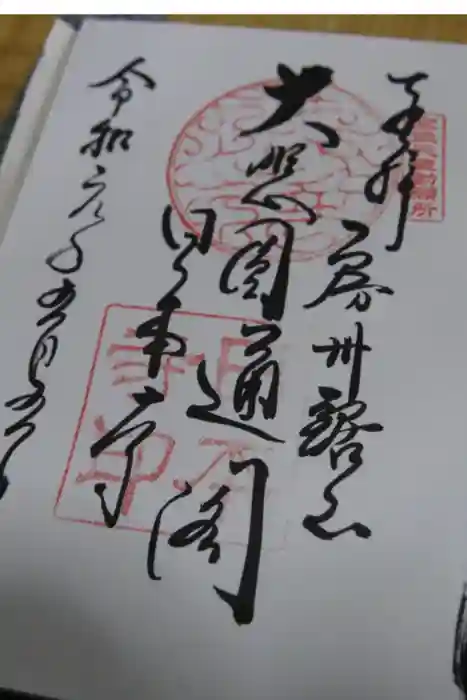 奉拝 房州鋸山
大悲圓通閣
日本寺
令和元年五月五日
日本
寺印